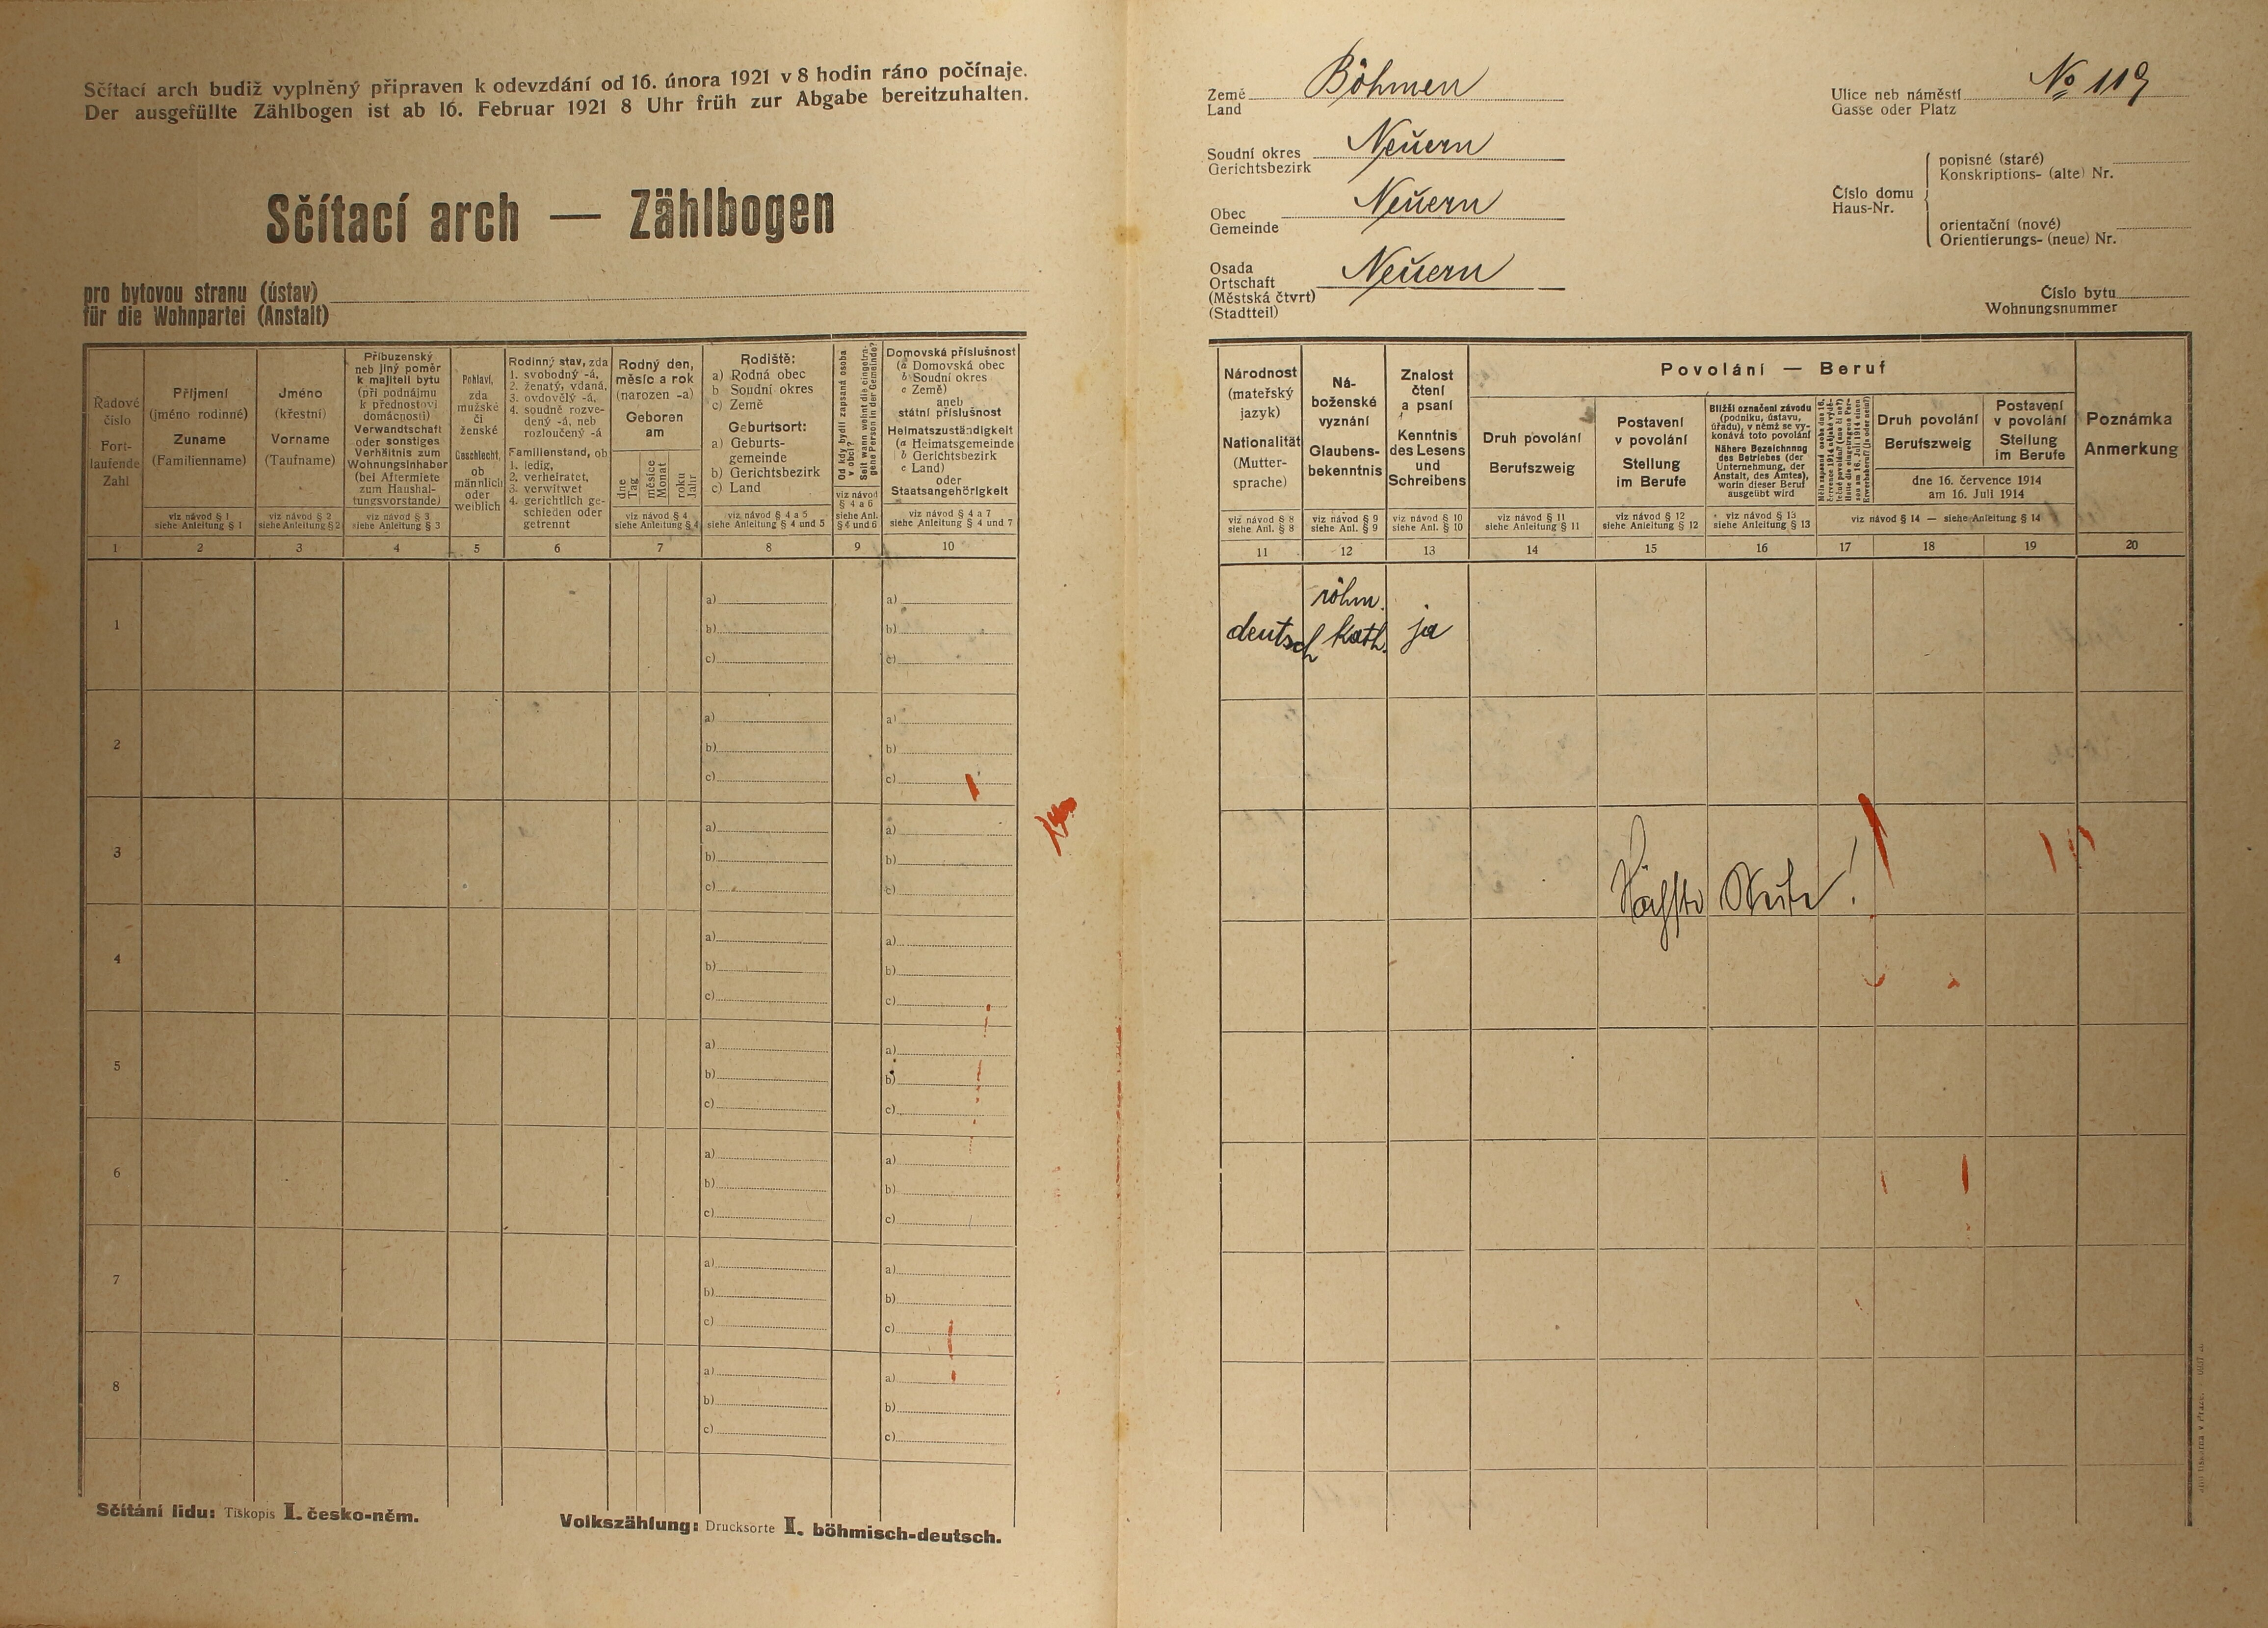 Sčítací arch budiž vyplněný připraven k odevzdání od 16. února 1921 v 8 hodin ráno počínaje.
Der ausgefüllte Zählbogen ist ab 16. Februar 1921 8 Uhr früh zur Abgabe bereitzuhalten.
Sčítací arch — Zählbogen
pro bytovou stranu (ústav)
für die Wohnpartei (Anstalt)
Země Böhmen
Land
Soudní okres Neuern
Gerichtsbezirk
Obec Neuern
Gemeinde
Osada
Ortschaft Neuern
(Městská čtvrt)
(Stadtteil)
Ulice neb náměstí No 119
Gasse oder Platz
Číslo domu
Haus-Nr.
popisné (staré)
Konskriptions- (alte) Nr.
orientační (nové)
Orientierungs- (neue) Nr.
Číslo bytu
Wohnungsnummer
Řadové
číslo
Fort-
laufende
Zahl
1
Příjmení
(jméno rodinné)
Zuname
(Familienname)
viz návod § 1
siehe Anleitung § 1
2
Jméno
(křestní)
Vorname
(Taufname)
viz návod § 2
siehe Anleitung § 2
3
Příbuzenský
neb jiný poměr
k majiteli bytu
(při podnájmu
k přednostovi
domácnosti)
Verwandtschaft
oder sonstiges
Verhältnis zum
Wohnungsinhaber
(bei Aftermiete
zum Haushal-
tungsvorstande)
viz návod § 3
siehe Anleitung § 3
4
Pohlaví,
zda
mužské
či
ženské
Geschlecht,
ob
männlich
oder
weiblich
5
Rodinný stav, zda
1. svobodný -á,
2. ženatý, vdaná,
3. ovdovělý -á,
4. soudně rozve-
dený -á, neb
rozloučený -á
Familienstand, ob
1. ledig,
2. verheiratet,
3. verwitwet
4. gerichtlich ge-
schieden oder
getrennt
6
Rodný den,
měsíc a rok
(narozen -a)
Geboren
am
dne
Tag
měsíce
Monat
roku
Jahr
viz návod § 4
siehe Anleitung § 4
7
Rodiště:
a) Rodná obec
b Soudní okres
c) Země
Geburtsort:
a) Geburts-
gemeinde
b) Gerichtsbezirk
c) Land
viz návod § 4 a 5
siehe Anleitung § 4 und 5
8
Od kdy bydlí zapsaná osoba
v obci?
Seit wann wohnt die eingetra-
gene Person in der Gemeinde?
viz návod
§ 4 a 6
siehe Anl.
§ 4 und 6
9
Domovská příslušnost
(a Domovská obec
b Soudní okres
c Země)
aneb
státní příslušnost
Heimatszuständigkeit
(a Heimatsgemeinde
b Gerichtsbezirk
c Land)
oder
Staatsangehörigkeit
viz návod § 4 a 7
siehe Anleitung § 4 und 7
10
Národnost
(mateřský
jazyk)
Nationalität
(Mutter-
sprache)
viz návod § 8
siehe Anl. § 8
11
Ná-
boženské
vyznání
Glaubens-
bekenntnis
viz návod § 9
siehe Anl. § 9
12
Znalost
čtení
a psaní
Kenntnis
des Lesens
und
Schreibens
viz návod § 10
siehe Anl. § 10
13
Povolání — Beruf
Druh povolání
Berufszweig
viz návod § 11
siehe Anleitung § 11
14
Postavení
v povolání
Stellung
im Berufe
viz návod § 12
siehe Anleitung § 12
15
Bližší označení závodu
(podniku, ústavu,
úřadu), v němž se vy-
konává toto povolání
Nähere Bezeichnung
des Betriebes (der
Unternehmung, der
Anstalt, des Amtes),
worin dieser Beruf
ausgeübt wird
viz návod § 13
siehe Anleitung § 13
16
17
Druh povolání
Berufszweig
Postavení
v povolání
Stellung
im Berufe
dne 16. července 1914
am 16. Juli 1914
viz návod § 14 — siehe Anleitung § 14
18
19
Poznámka
Anmerkung
20
1
a)
b)
c)
a)
b)
c)
deutsch
röhm.
kath.
ja
2
a)
b)
c)
a)
b)
c)
3
a)
b)
c)
a)
b)
c)
4
a)
b)
c)
a)
b)
c)
5
a)
b)
c)
a)
b)
c)
6
a)
b)
c)
a)
b)
c)
7
a)
b)
c)
a)
b)
c)
8
a)
b)
c)
a)
b)
c)
Sčítání lidu: Tiskopis I. česko-něm.
Volkszählung: Drucksorte I. böhmisch-deutsch.